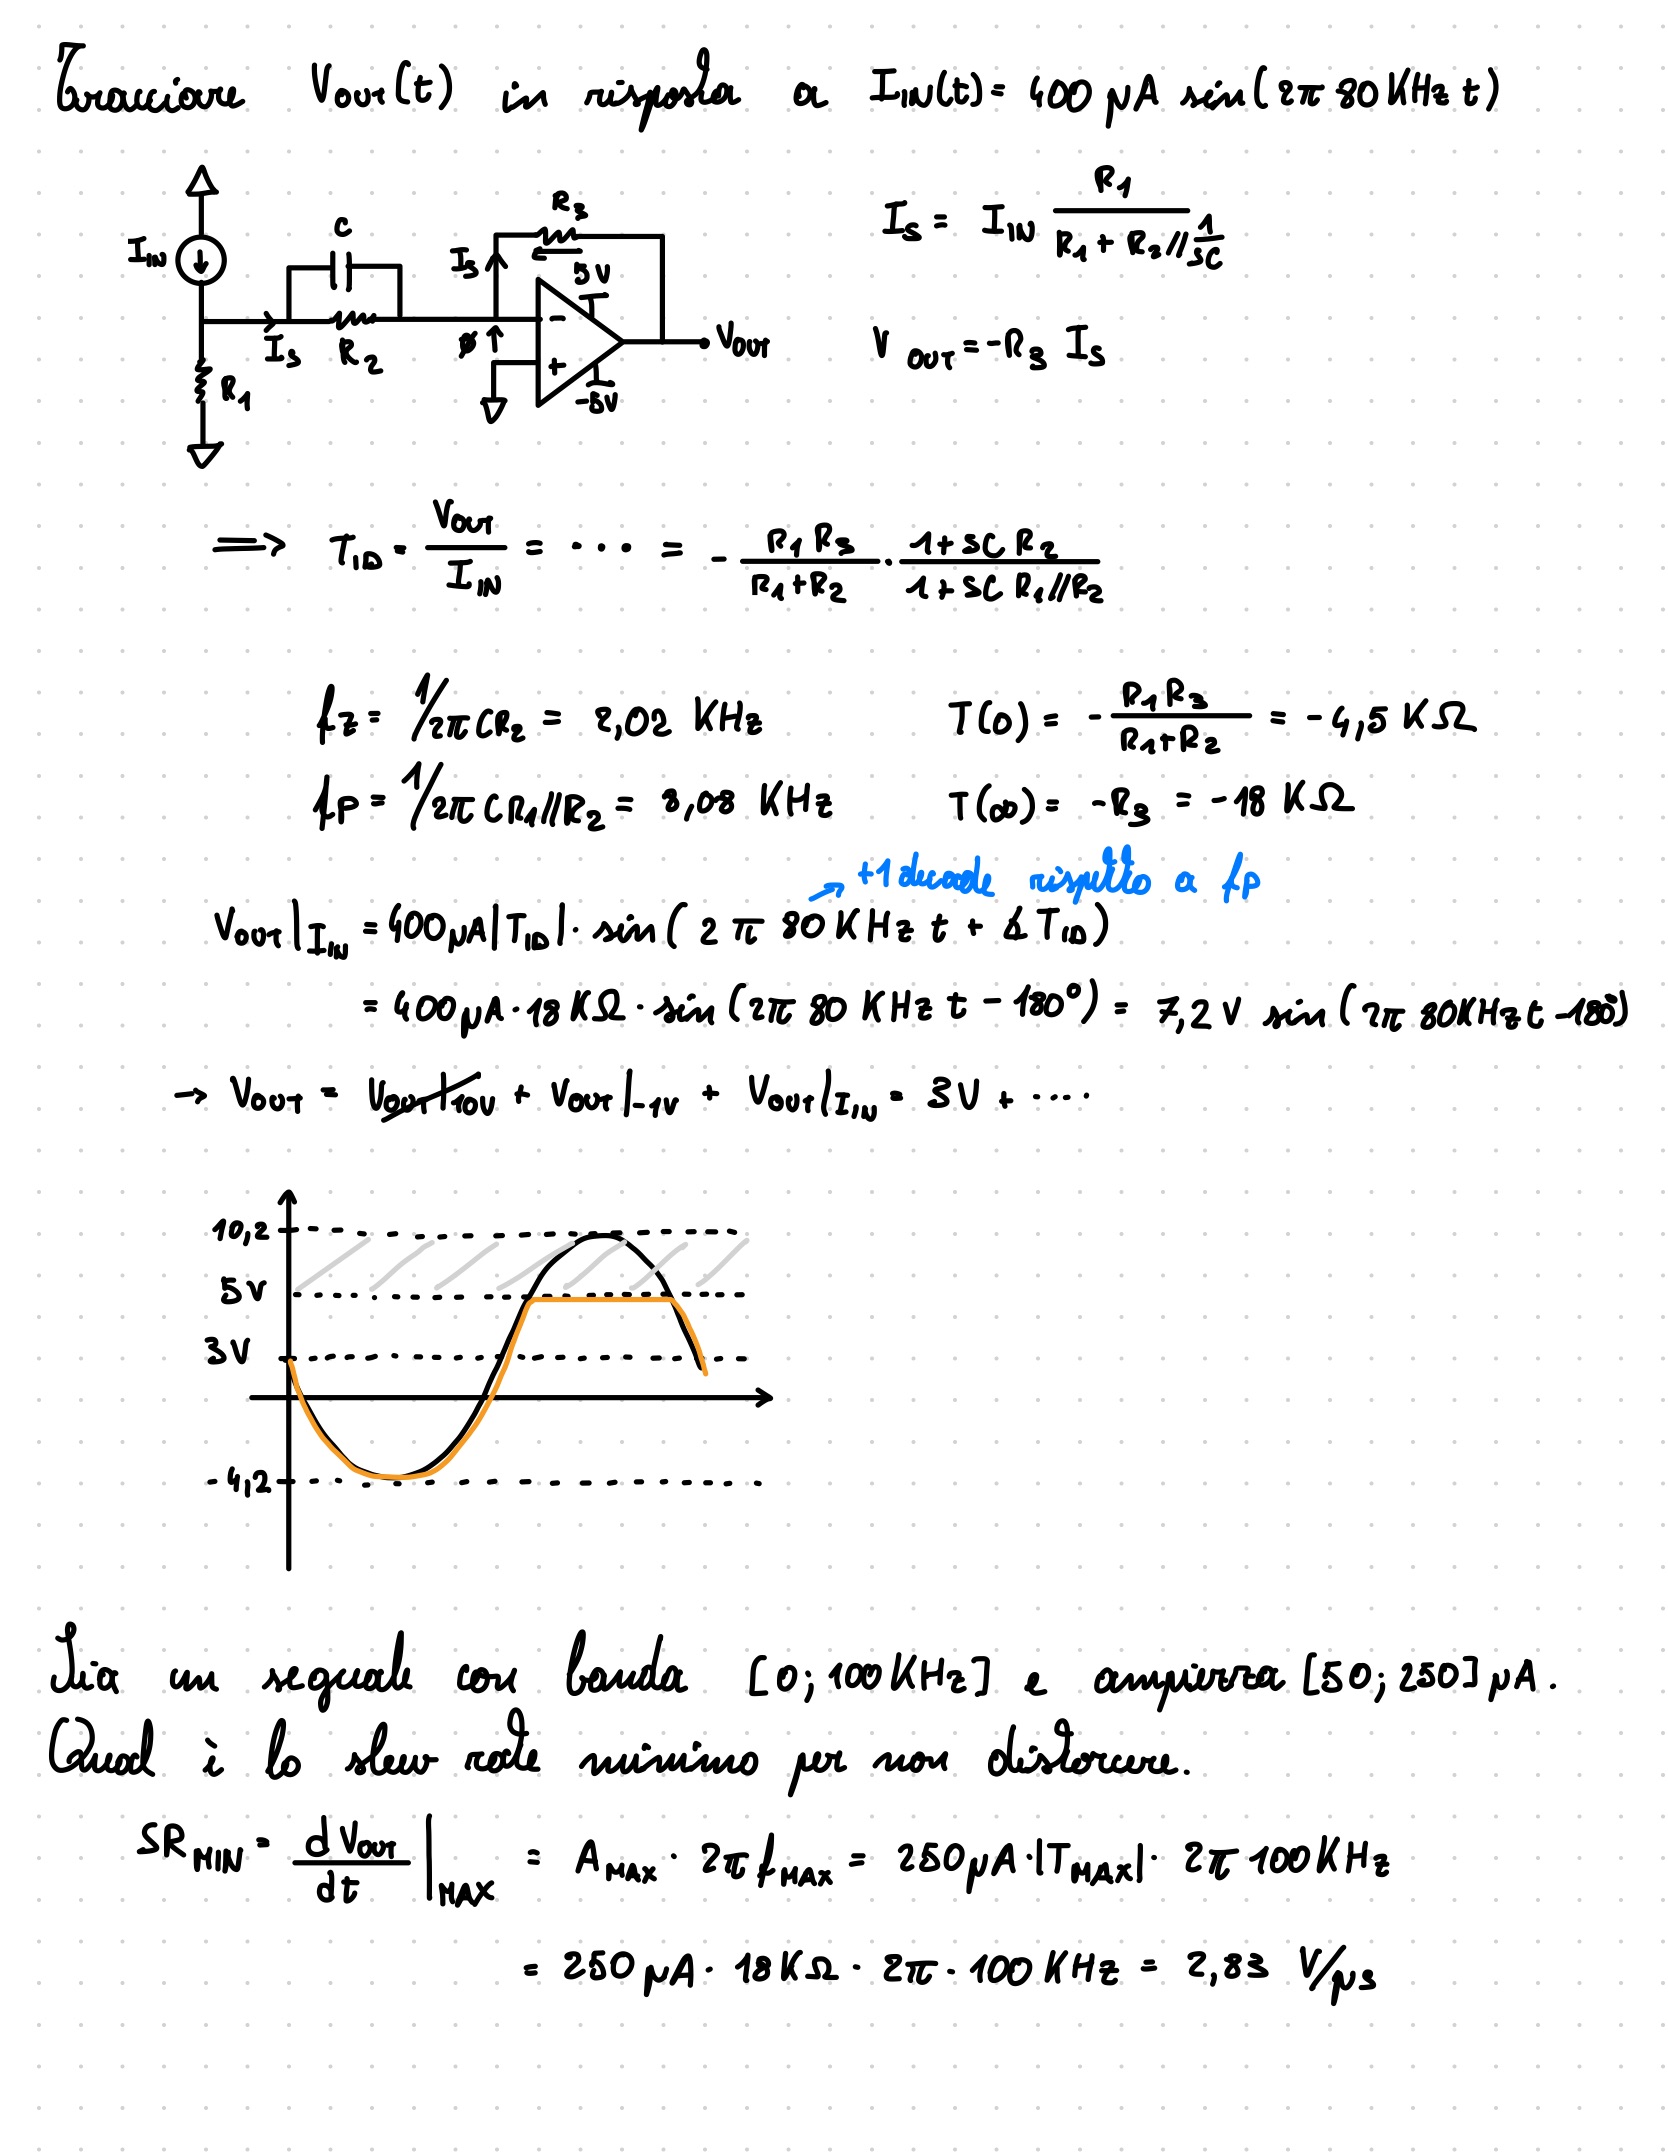 Tracciare Vout(t) in risposta a IIN(t) = 400 μA sin(2π 80 KHz t)
IIN
C
R3
Is
5V
Is
R2
∅
-
+
-5V
VOUT
R1
IS = IIN R1 / (R1 + R2 // 1/SC)
VOUT = -R3 IS
⟹ TID = VOUT / IIN = ··· = - R1 R3 / (R1+R2) · (1+SC R2) / (1+SC R1//R2)
fz = 1/2πCR2 = 2,02 KHz
T(0) = - R1 R3 / (R1+R2) = -4,5 KΩ
fp = 1/2πCR1//R2 = 8,08 KHz
T(∞) = -R3 = -18 KΩ
→ +1 decade rispetto a fp
VOUT|IIN = 400μA|TID| · sin(2π 80 KHz t + ∡ TID)
= 400μA · 18 KΩ · sin(2π 80 KHz t - 180°) = 7,2 V sin(2π 80KHz t -180°)
→ VOUT = VOUT|10V + VOUT|-1V + VOUT|IIN = 3V + ····
10,2
5V
3V
-4,2
Sia un segnale con banda [0; 100KHz] e ampiezza [50; 250] μA.
Qual è lo slew rate minimo per non distorcere.
SRMIN = dVOUT/dt |MAX = AMAX · 2π fMAX = 250μA · |TMAX| · 2π 100KHz
= 250 μA · 18KΩ · 2π · 100 KHz = 2,83 V/μs